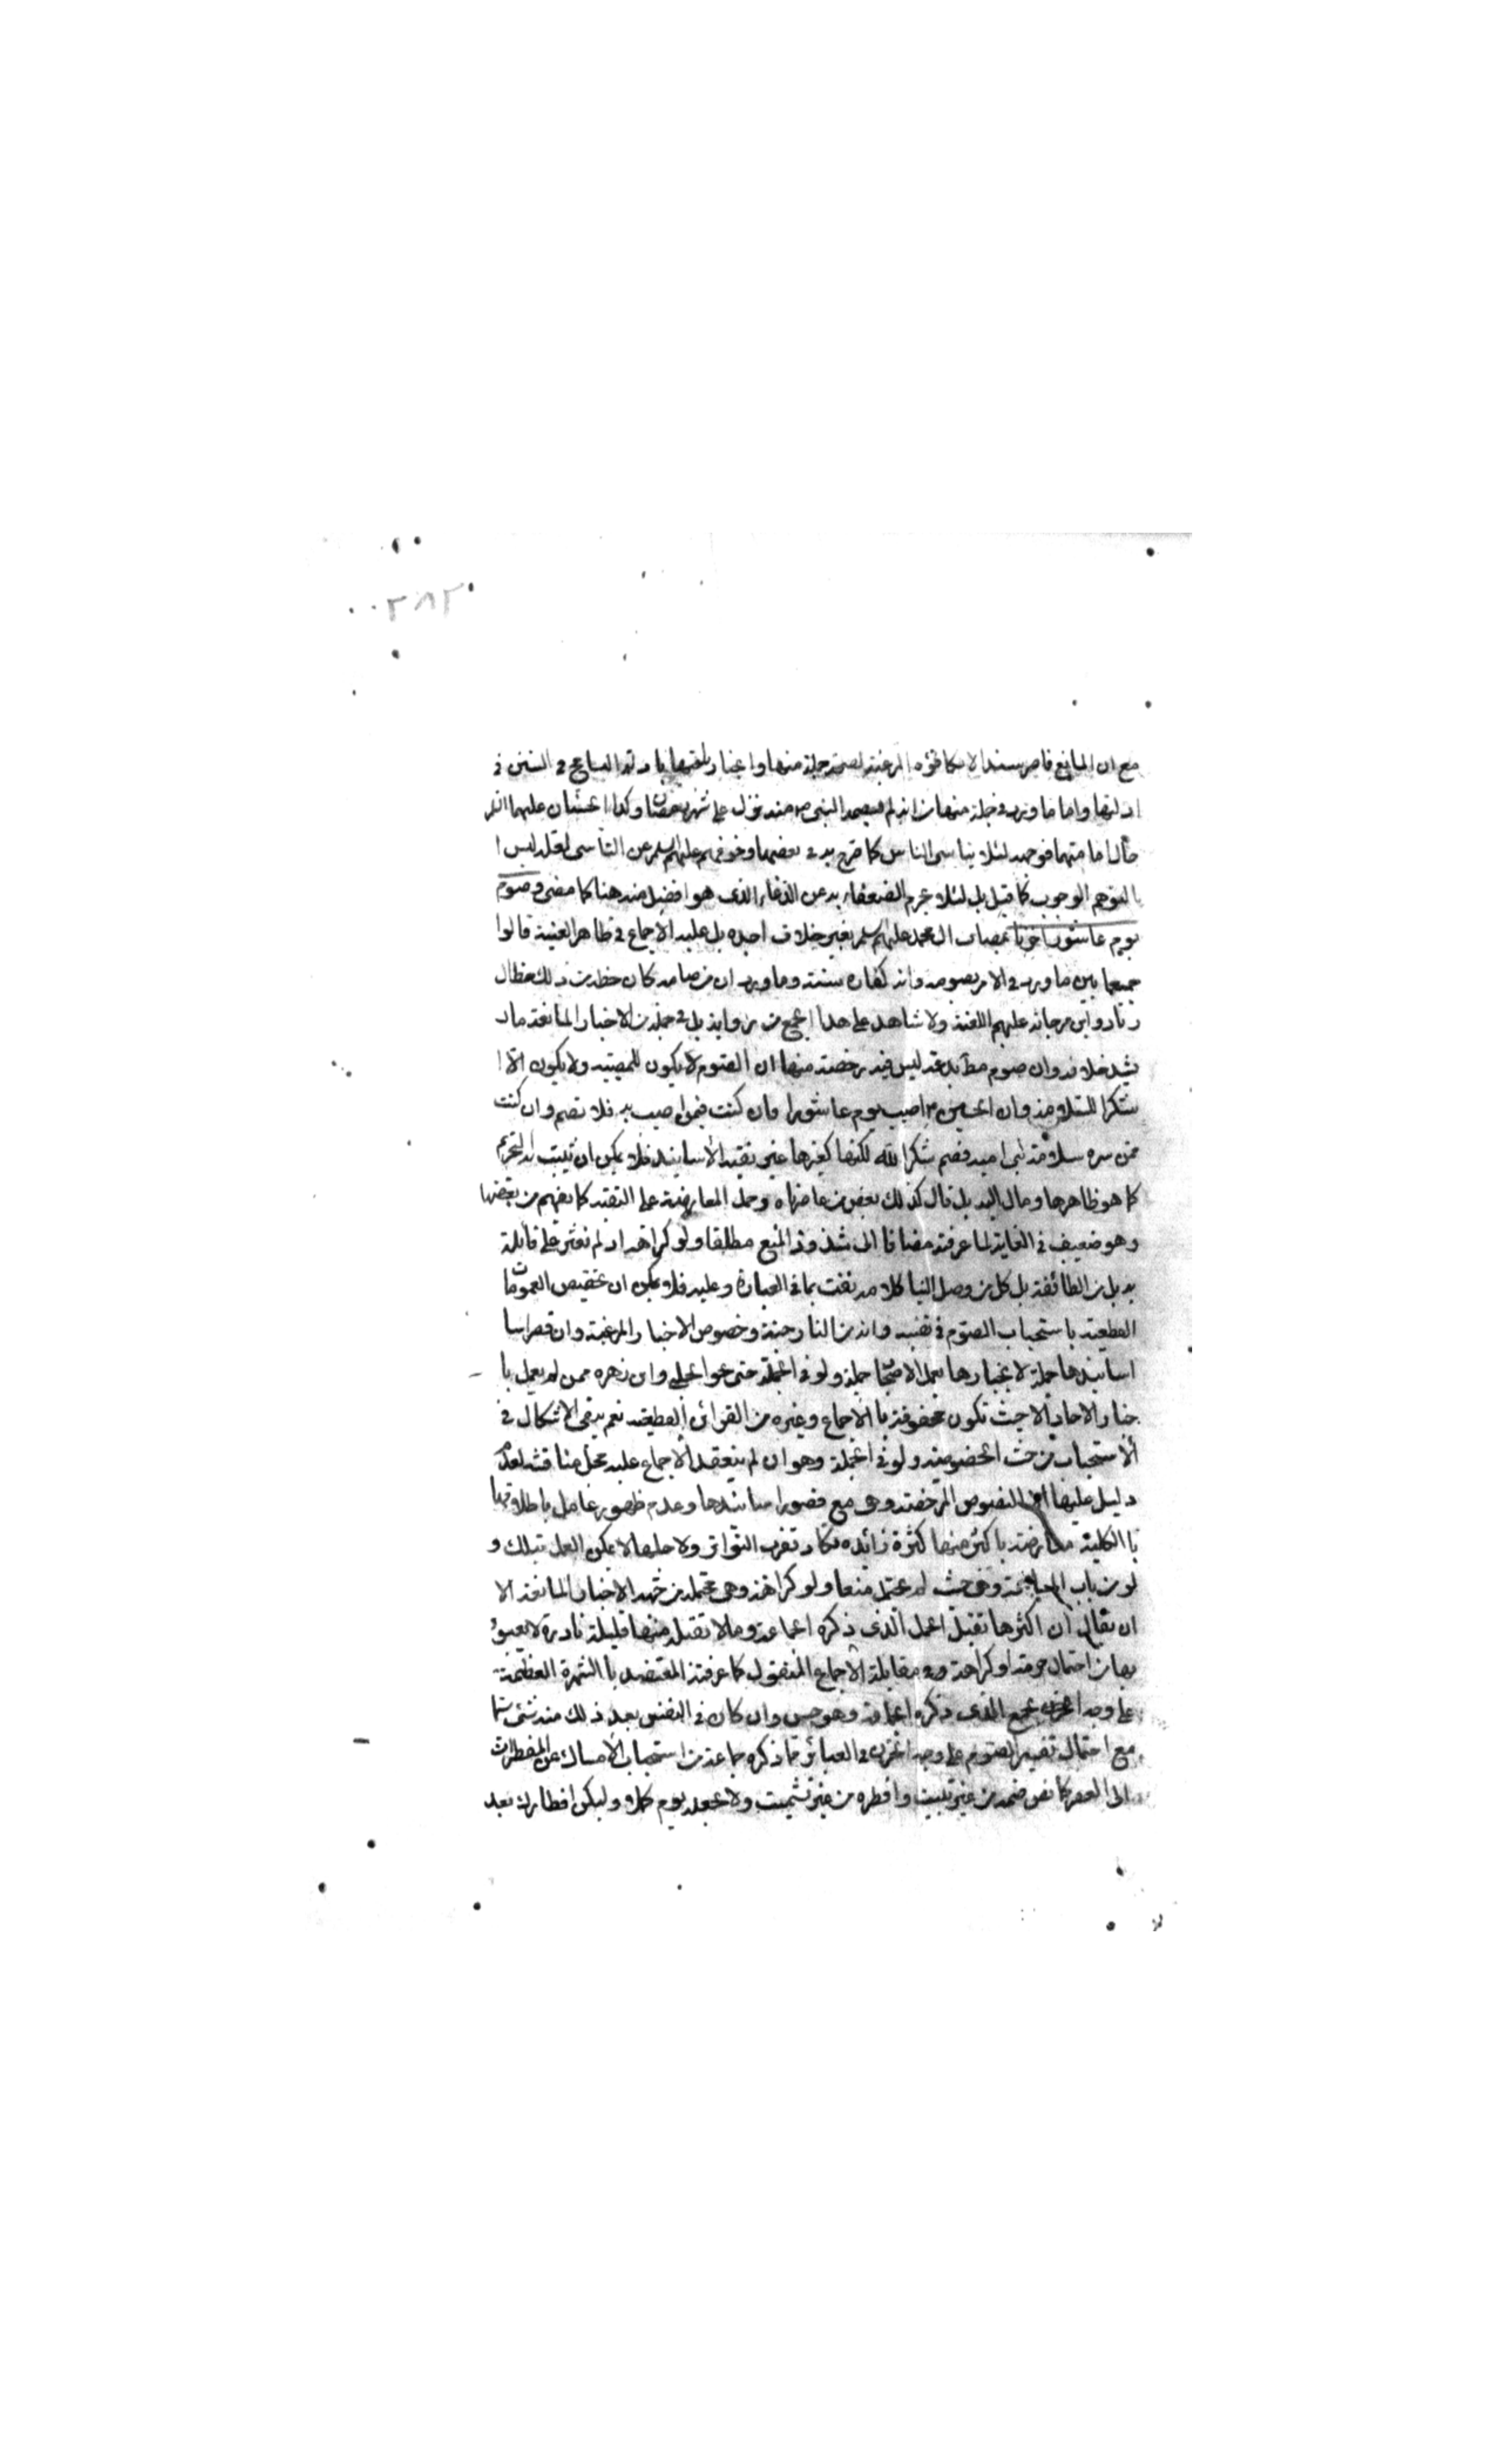 ٢٨٢
مع ان المانع قاصر سندا لا يكافؤه المرغبة لصحة جملة منها واعتبار باقيها بادلة التسامح في السنن في
ادلتها واما ما ورد في جملة منها من انه لم يصمه النبي ص منذ نزل علي شهر رمضان وكذا الحسنان عليهما السلم
حال امامتهما فوجهه لئلا يتاسى الناس كما صرح به في بعضها وخوفهم عليهم السلم عن التاسى لعله ليس ا
التوهم الوجوب كما قيل بل لئلا يحرم الضعفاء به عن الدعاء الذى هو افضل منه هنا كما مضى و صوم
يوم عاشورا حزنا بمصاب ال محمد عليهم السلم بغير خلاف اجده بل عليه الاجماع في ظاهر الغنية قالوا
جمعا بين ما ورد في الامر بصومه وانه كفارة سنة وما ورد ان من صامه كان حظه من ذلك حظ ال
زياد وابن مرجانه عليهم اللعنة ولا شاهد على هذا الجمع من رواية بل في جملة من الاخبار المانعة ما
يشيد خلافه وان صوم متابعه ليس فيه رخصة منها ان الصوم لا يكون للمصيبة ولا يكون الا ا
شكرا للسلامة وان الحسين ع اصيب يوم عاشورا فان كنت فيمن اصيب به فلا تصم وان كنت
ممن سره سلامة بنى اميه فصم شكرا لله لكنها كغيرها غير نقية الاسانيد فلا يمكن ان يثبت بها التحريم
كما هو ظاهرها ومال اليه بل قال كذلك بعض من عاصرناه وحمل المعارضة على التقية كما يفهم من بعضها
وهو ضعيف في الغاية لما عرفته مضافا الى شذوذ المنع مطلقا ولو كراهه اذ لم نعثر على قائله
به بل من الطائفة بل كل من وصل الينا كلامه نفت بما في العبارة وعليه فلا يمكن ان تخصيص العمومات
القطعية باستحباب الصوم في نفسه وانه من النار جنة وخصوص الاخبار المرغبة وان قصر اسا
اسانيدها جملة لاعتبارها بعمل الاصحاب جملة ولو في الجملة حتى نحو الحلي وابن زهره ممن لم يعمل با
خبار الاحاد الا حيث تكون محفوفة با الاجماع وغيره من القرائن القطعية نعم يبقى الاشكال في
الاستحباب من حيث الخصوصية ولو في الجملة وهو ان لم ينعقد الاجماع عليه محل مناقشه لعدم
دليل عليها الا النصوص المرخصة وهى مع قصور اسانيدها وعدم ظهور عامل باطلاقها
با الكلية معارضة باكثر منها كثرة زائده تكاد تقرب التواتر ولاجلها لا يمكن العمل بتلك و
لو من باب المسامحة وهى حيث لم يحتمل منعا ولو كراهة وهى محتملة من جهة الاخبار المانعة الا
ان يقال ان اكثرها تقبل الحمل الذى ذكره الجماعة وما لا تقبله منها قليلة نادرة لا يعبؤ
بها من احتمال حرمة او كراهة وفى مقابلة الاجماع المنقول كما عرفته المعتضد با الشهرة العظيمة
على وجه الحزن بجمع الذى ذكره الجماعة وهو حسن وان كان في النفس بعد ذلك منه شئ سيما
مع احتمال تفسير الصوم على وجه الحزن في العبائر بما ذكره جماعة من استحباب الامساك عن المفطرات
الى العصر كما نص صمه من غير تبييت وافطره من غير تشميت ولا تجعله يوم كملا وليكن افطارك بعد